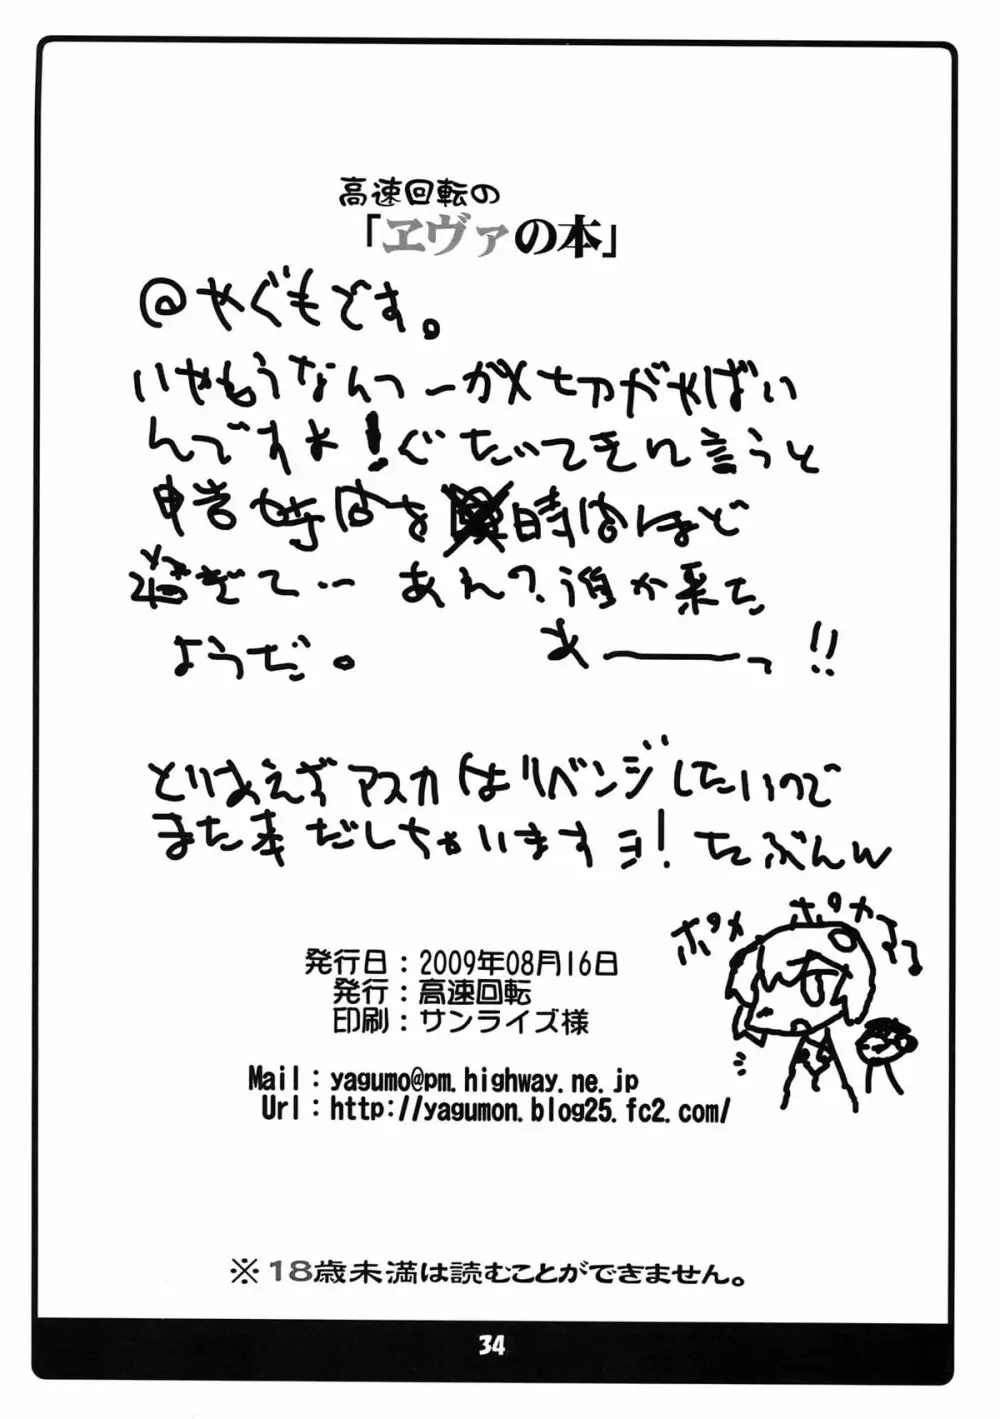 高速回転の
「ヱヴァの本」
@やぐもです。
いやもうなんつーか〆切がやばい
んですよ!ぐたいてきに言うと
申告時間を 時間ほど
過ぎて… あれ?誰か来た
ようだ。 あーーっ!!
とりあえずアスカはリベンジしたいので
また本だしちゃいますヨ!たぶんw
ポメ
ポカ
発行日:2009年08月16日
発行:高速回転
印刷:サンライズ様
Mail:yagumo@pm.highway.ne.jp
Url:http://yagumon.blog25.fc2.com/
※18歳未満は読むことができません。
34